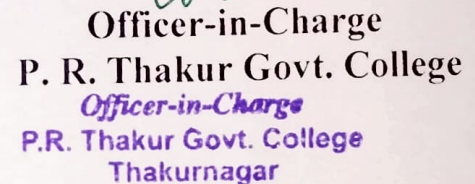 Officer-in-Charge
P. R. Thakur Govt. College
Officer-in-Charge
P.R. Thakur Govt. College
Thakurnagar